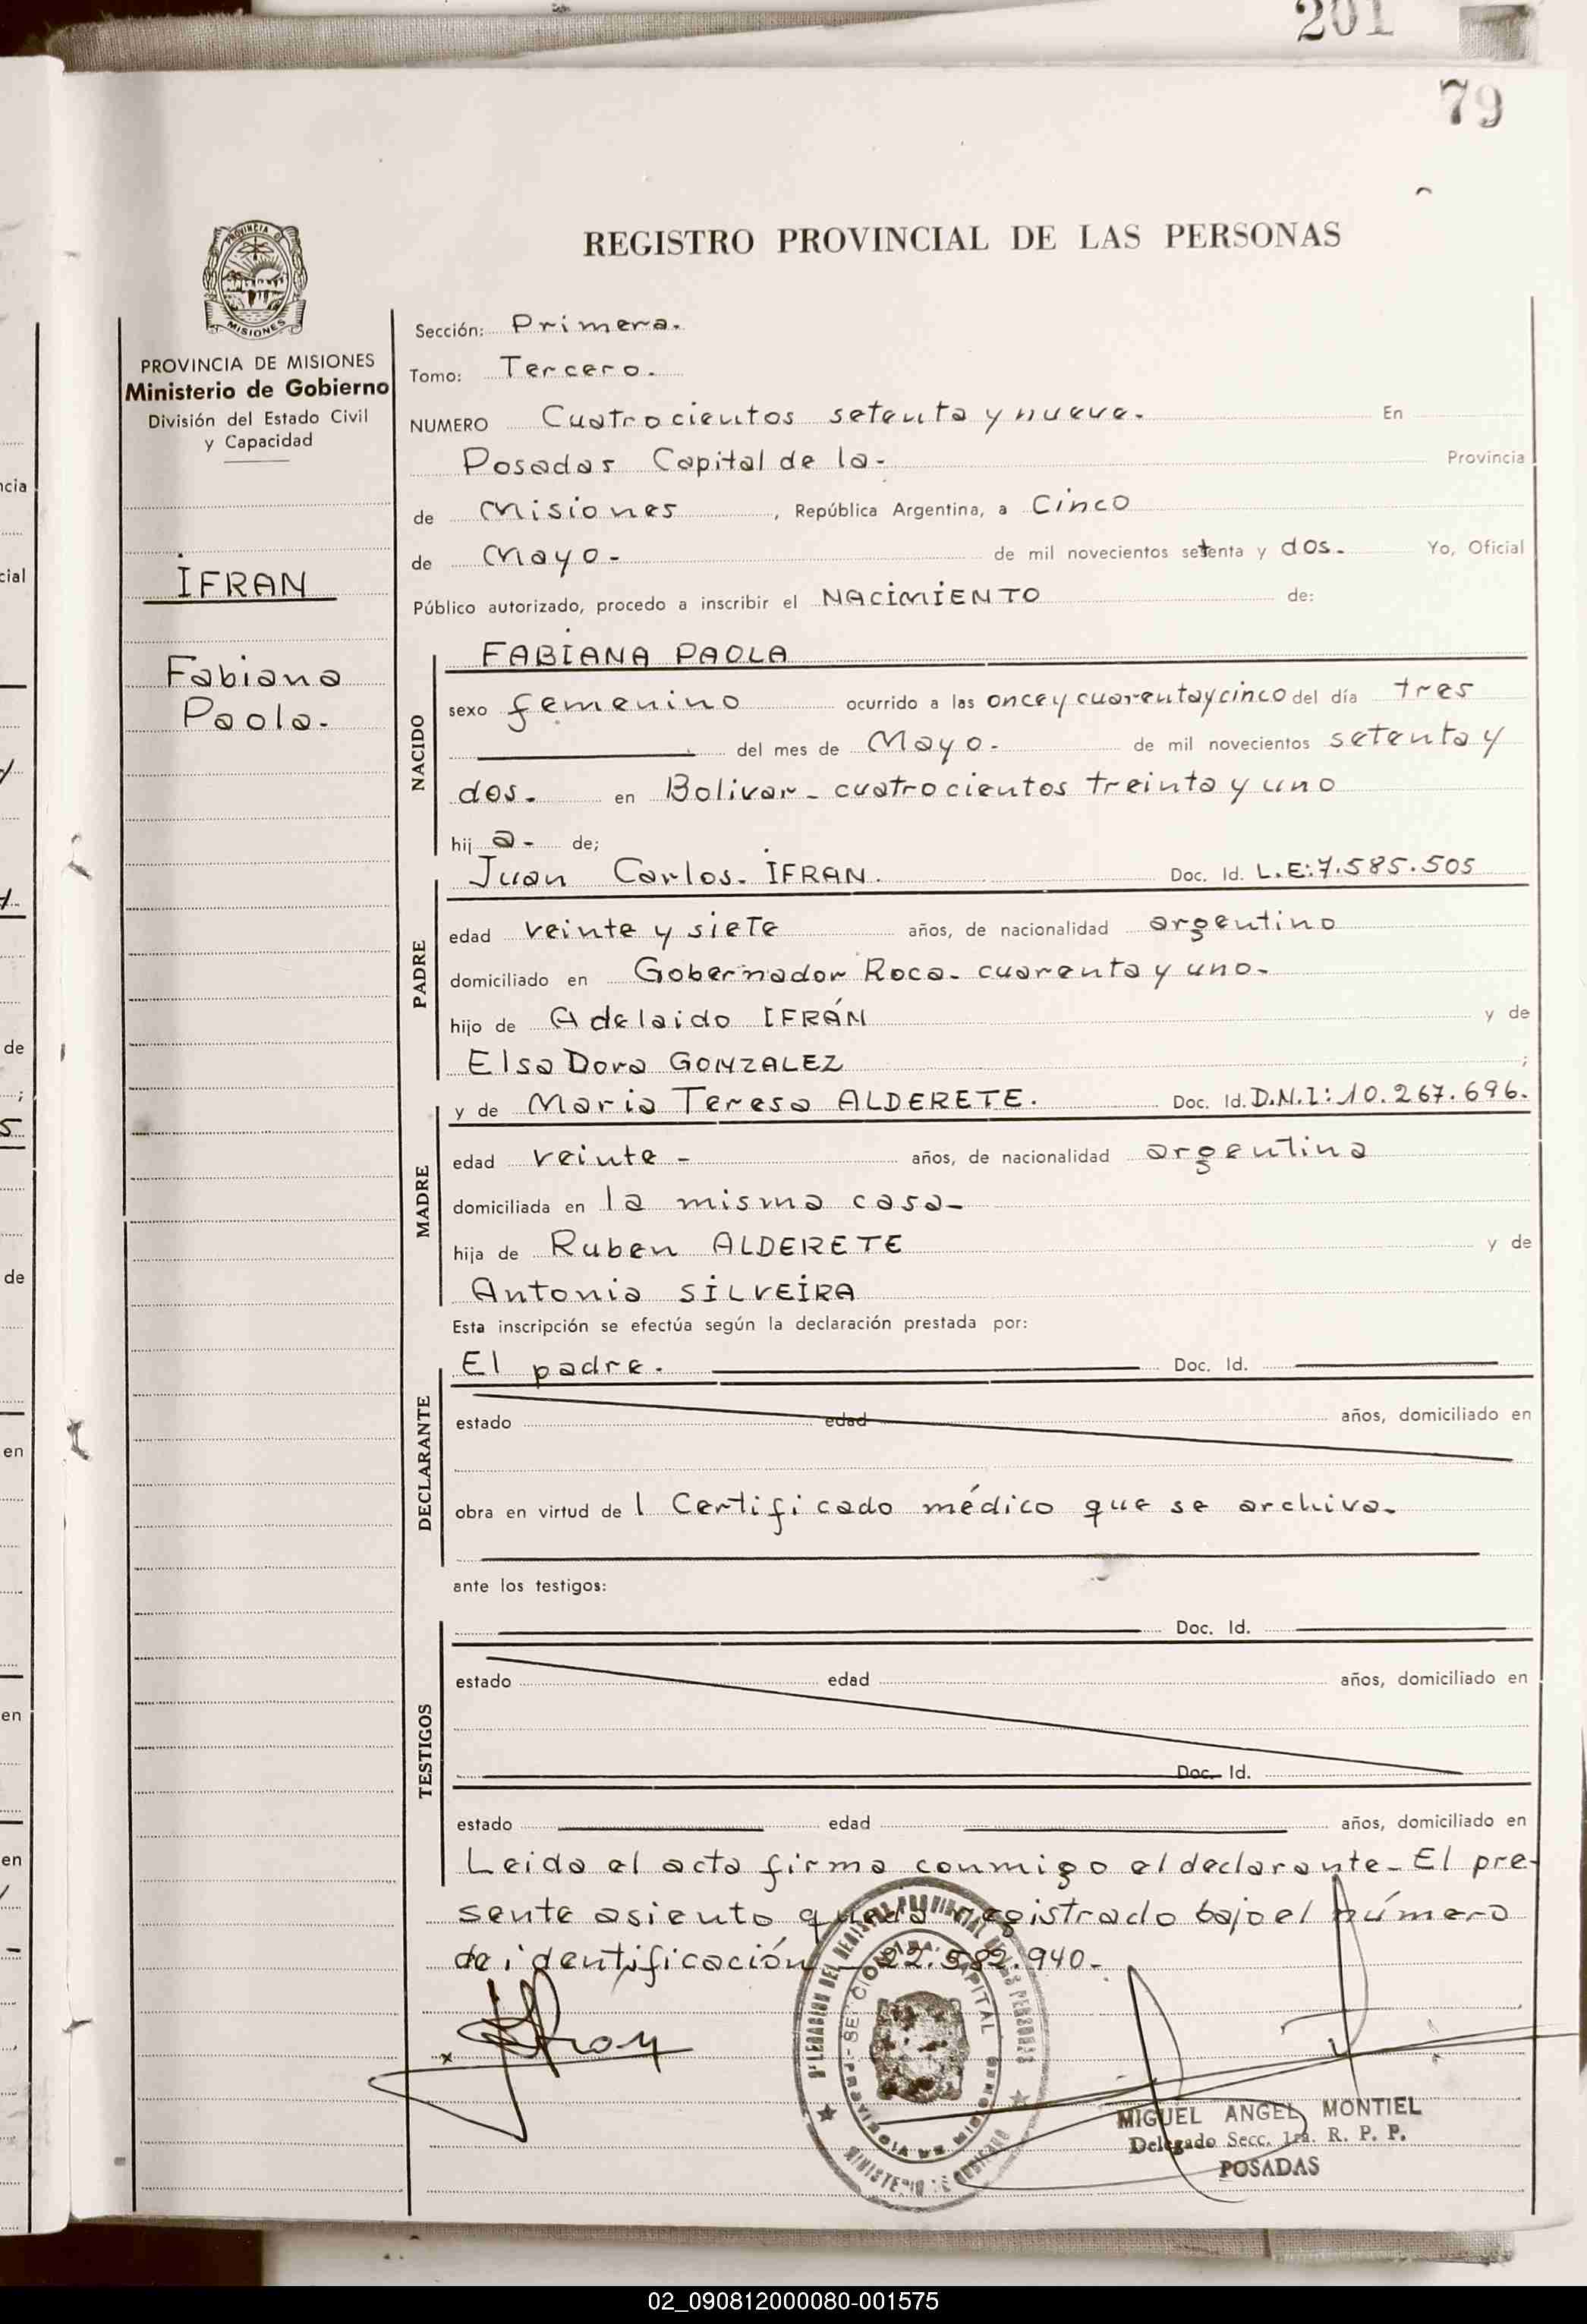 201
79
PROVINCIA DE
MISIONES
PROVINCIA DE MISIONES
Ministerio de Gobierno
División del Estado Civil
y Capacidad
IFRAN
Fabiana
Paola.
REGISTRO PROVINCIAL DE LAS PERSONAS
Sección: Primera.
Tomo: Tercero.
NUMERO Cuatrocientos setenta y nueve. En
Posadas Capital de la- Provincia
de Misiones, República Argentina, a Cinco
de Mayo- de mil novecientos setenta y dos. Yo, Oficial
Público autorizado, procedo a inscribir el NACIMIENTO de:
NACIDO
FABIANA PAOLA
sexo femenino ocurrido a las once y cuarenta y cinco del día tres
del mes de Mayo- de mil novecientos setenta y
dos. en Bolivar- cuatrocientos treinta y uno
hij a- de;
PADRE
Juan Carlos. IFRAN. Doc. Id. L.E:7.585.505
edad veinte y siete años, de nacionalidad argentino
domiciliado en Gobernador Roca- cuarenta y uno-
hijo de Adelaido IFRÁN y de
Elsa Dora GONZALEZ ;
MADRE
y de Maria Teresa ALDERETE. Doc. Id. D.N.I:10.267.696.
edad veinte- años, de nacionalidad argentina
domiciliada en la misma casa-
hija de Ruben ALDERETE y de
Antonia SILVEIRA
Esta inscripción se efectúa según la declaración prestada por:
DECLARANTE
El padre. Doc. Id.
estado edad años, domiciliado en
obra en virtud de 1 Certificado médico que se archiva.
ante los testigos:
TESTIGOS
Doc. Id.
estado edad años, domiciliado en
Doc. Id.
estado edad años, domiciliado en
Leida el acta firma conmigo el declarante- El pre-
sente asiento queda registrado bajo el número
de identificación-22.582.940-
DELEGACION DEL REGISTRO PROVINCIAL DE LAS PERSONAS
MINISTERIO DE GOBIERNO
CAPITAL
PROVINCIA DE MISIONES
MIGUEL ANGEL MONTIEL
Delegado Secc. 1ra. R. P. P.
POSADAS
02_090812000080-001575